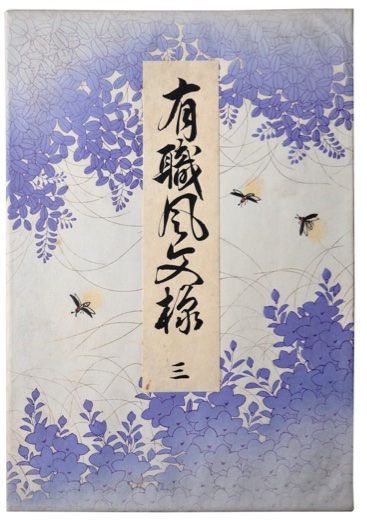 有職風文様
三